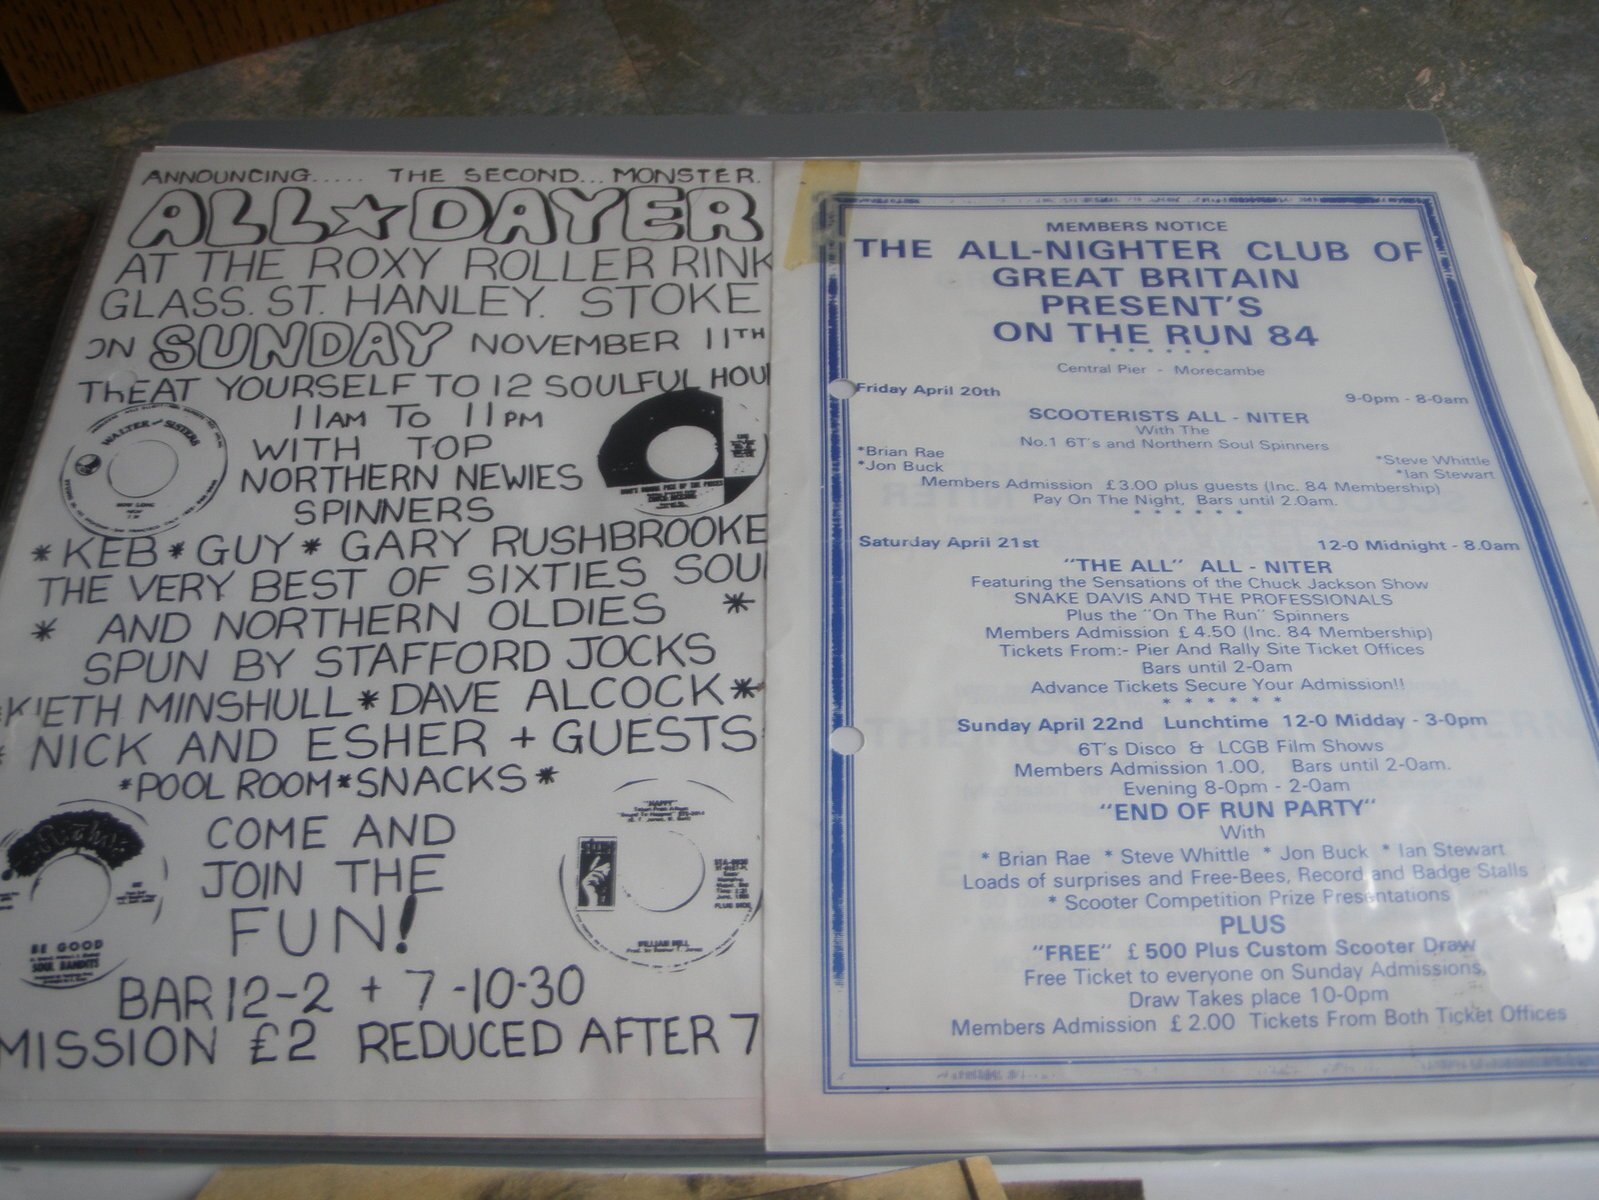 ANNOUNCING..... THE SECOND... MONSTER.
ALL★DAYER
AT THE ROXY ROLLER RINK
GLASS. ST. HANLEY. STOKE
ON SUNDAY NOVEMBER 11TH
THEAT YOURSELF TO 12 SOULFUL HOU
11AM TO 11PM
WITH TOP
NORTHERN NEWIES
SPINNERS
*KEB*GUY* GARY RUSHBROOKE
THE VERY BEST OF SIXTIES SOU
* AND NORTHERN OLDIES *
SPUN BY STAFFORD JOCKS
*KIETH MINSHULL*DAVE ALCOCK*
*NICK AND ESHER + GUESTS
*POOL ROOM*SNACKS*
COME AND
JOIN THE
FUN!
BAR 12-2 + 7-10-30
MISSION £2 REDUCED AFTER 7
WALTER and SISTERS
BE GOOD
SOUL BANDITS
"HAPPY"
WILLIAM BELL
MEMBERS NOTICE
THE ALL-NIGHTER CLUB OF
GREAT BRITAIN
PRESENT'S
ON THE RUN 84
* * * * * *
Central Pier - Morecambe
Friday April 20th 9-0pm - 8-0am
SCOOTERISTS ALL - NITER
With The
No.1 6T's and Northern Soul Spinners
*Brian Rae *Steve Whittle
*Jon Buck *Ian Stewart
Members Admission £3.00 plus guests (Inc. 84 Membership)
Pay On The Night, Bars until 2.0am.
* * * * * *
Saturday April 21st 12-0 Midnight - 8.0am
"THE ALL" ALL - NITER
Featuring the Sensations of the Chuck Jackson Show
SNAKE DAVIS AND THE PROFESSIONALS
Plus the "On The Run" Spinners
Members Admission £4.50 (Inc. 84 Membership)
Tickets From:- Pier And Rally Site Ticket Offices
Bars until 2-0am
Advance Tickets Secure Your Admission!!
* * * * * *
Sunday April 22nd Lunchtime 12-0 Midday - 3-0pm
6T's Disco & LCGB Film Shows
Members Admission 1.00, Bars until 2-0am.
Evening 8-0pm - 2-0am
"END OF RUN PARTY"
With
* Brian Rae * Steve Whittle * Jon Buck * Ian Stewart
Loads of surprises and Free-Bees, Record and Badge Stalls
* Scooter Competition Prize Presentations
PLUS
"FREE" £500 Plus Custom Scooter Draw
Free Ticket to everyone on Sunday Admissions,
Draw Takes place 10-0pm
Members Admission £2.00 Tickets From Both Ticket Offices